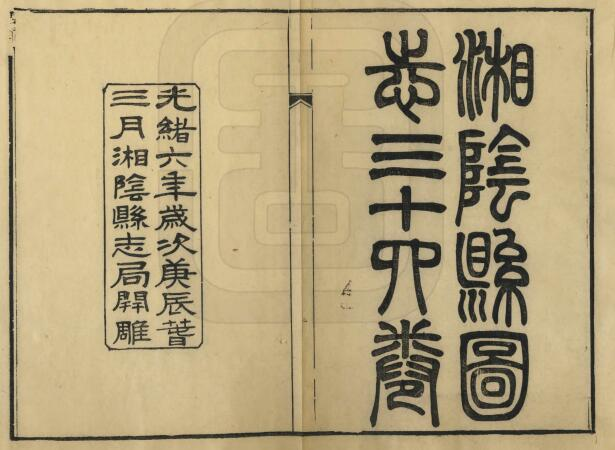 湘陰縣圖
志三十四卷
光緒六年歲次庚辰萅
三月湘陰縣志局開雕